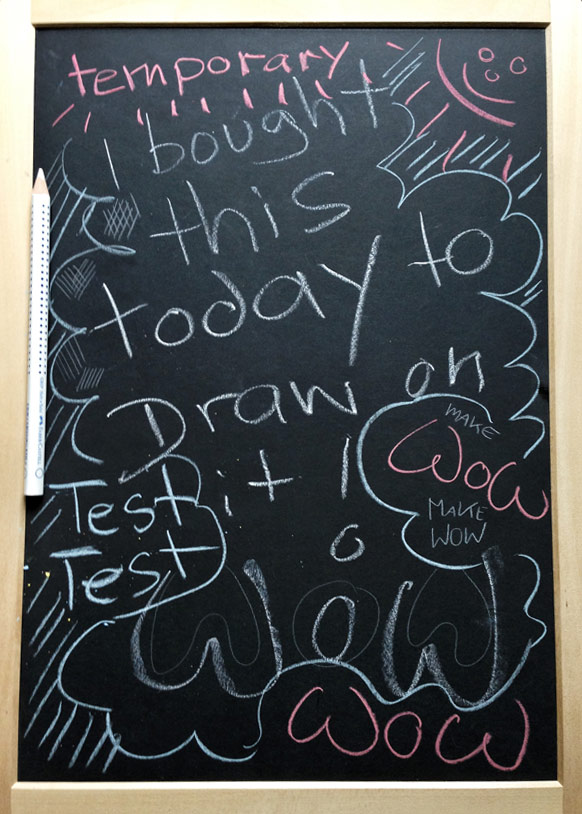 temporary
I bought
this
today to
Draw on
it !
MAKE
WOW
MAKE
WOW
Test
Test
WOW
WOW